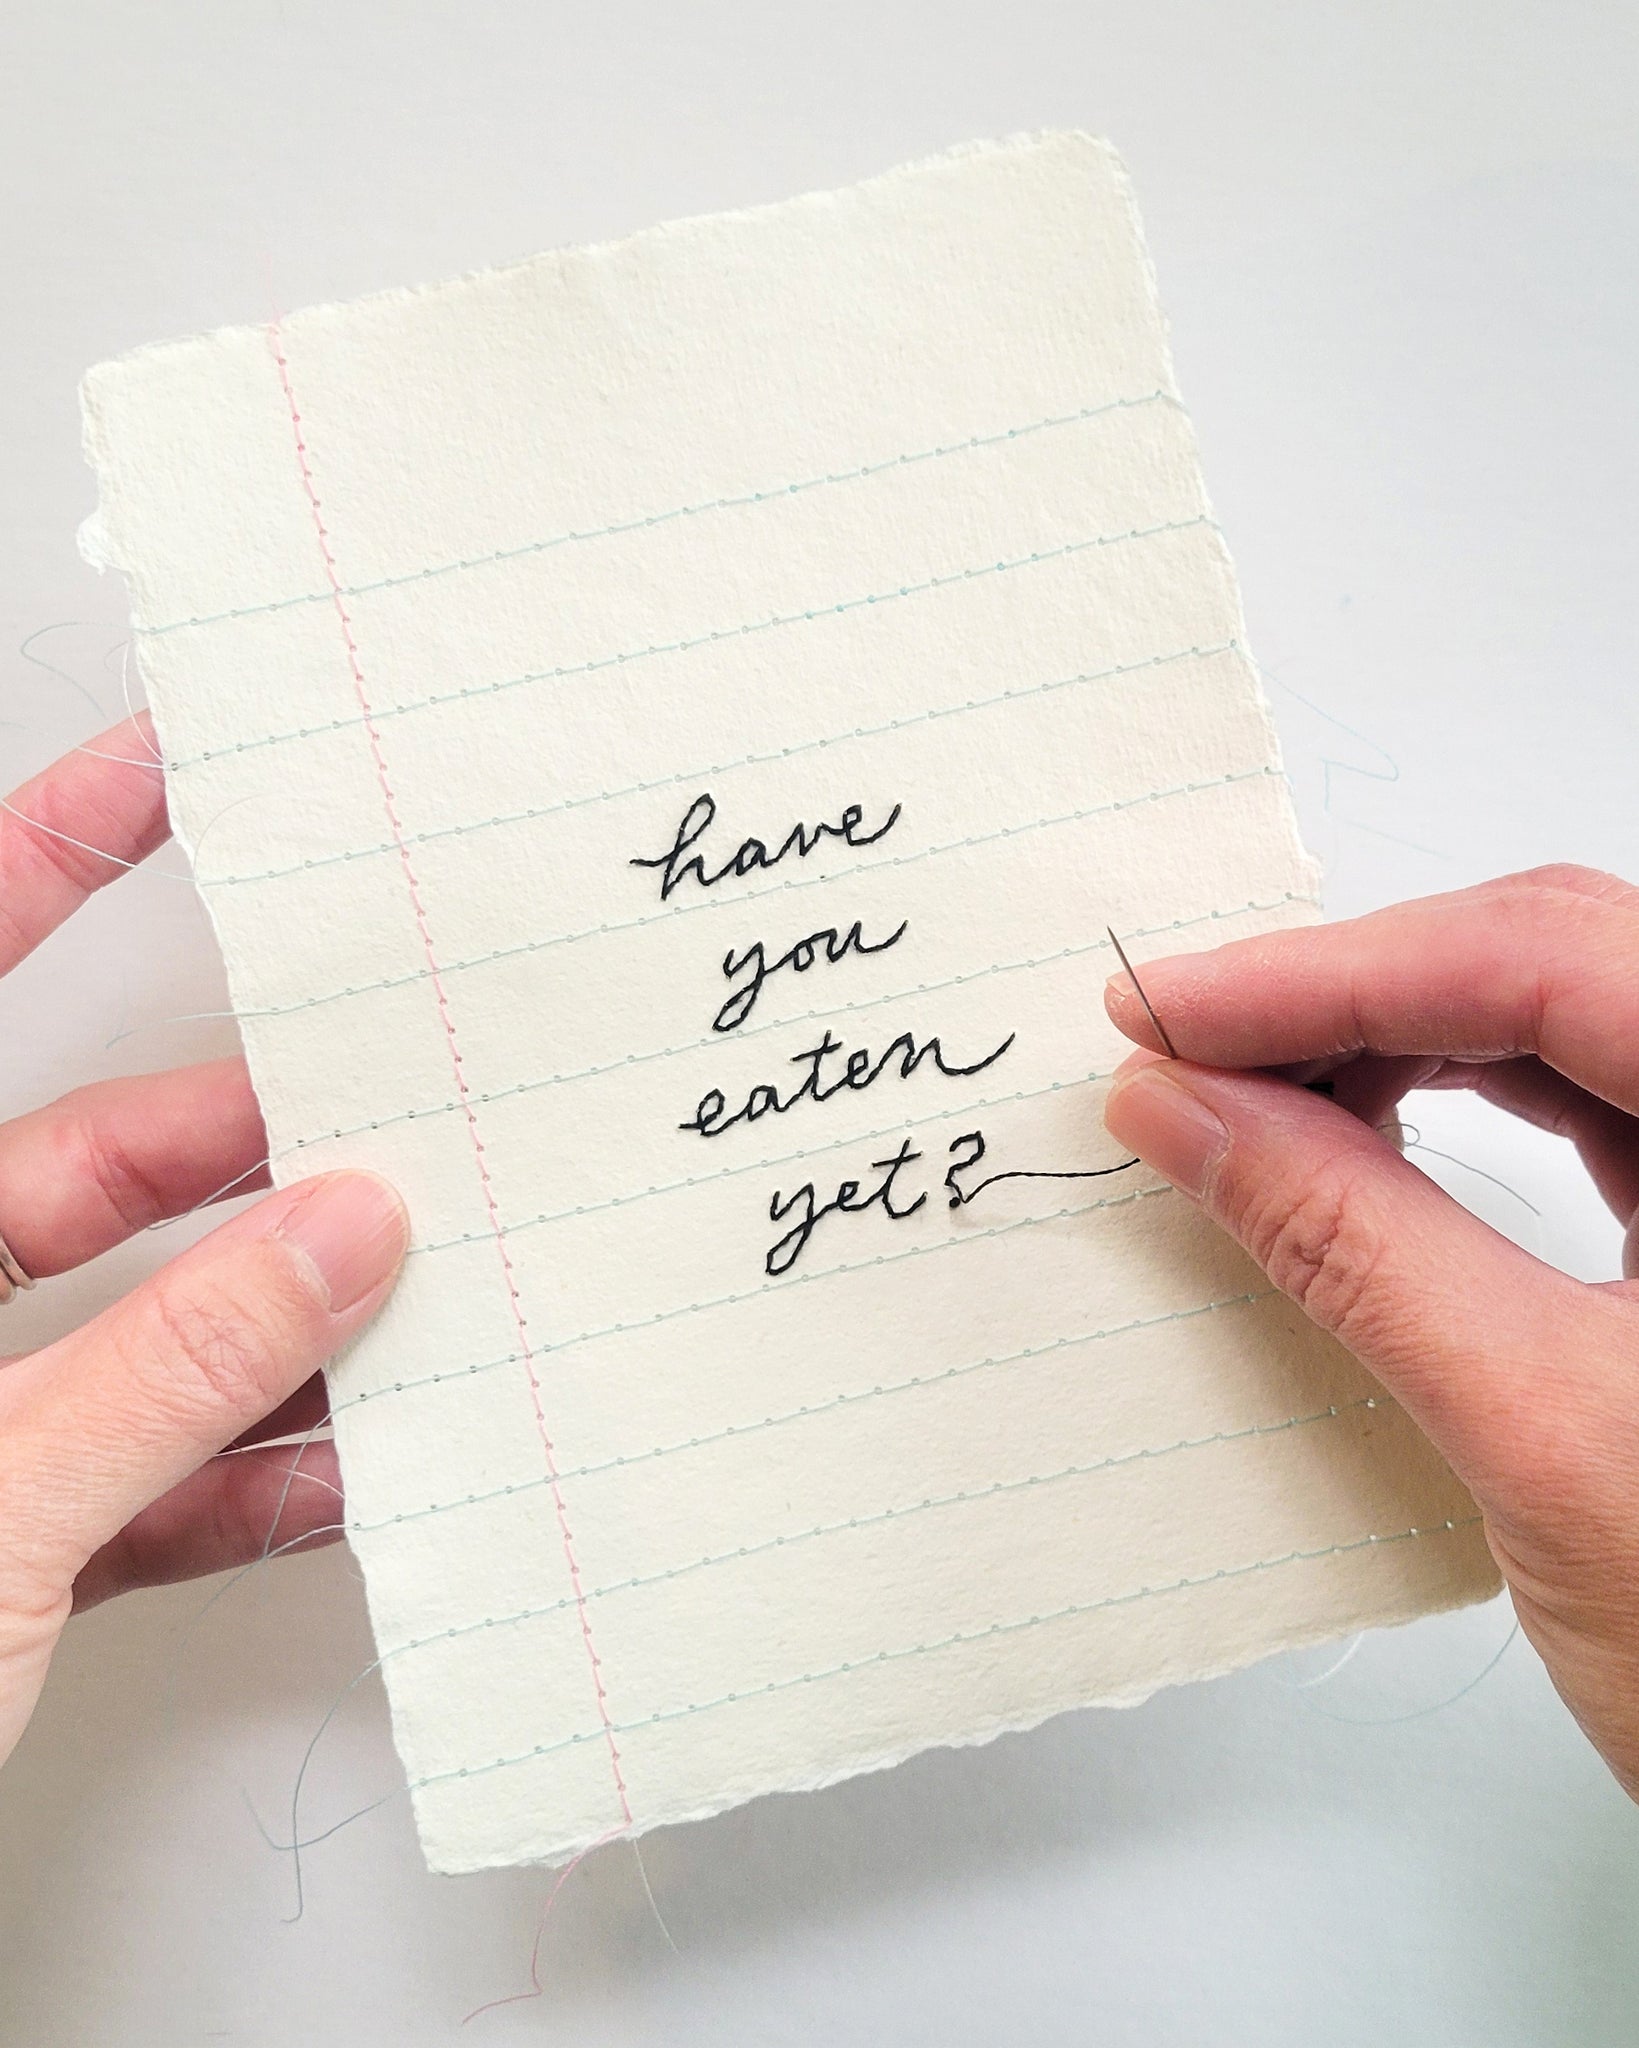 have
you
eaten
yet?